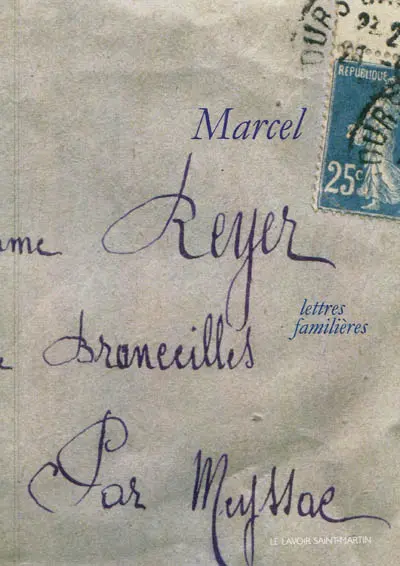 23 2
OURS
RÉPUBLIQUE
25c
Marcel
ame Reyer
lettres
familières
e Branceilles
Par Meyssac
LE LAVOIR SAINT-MARTIN